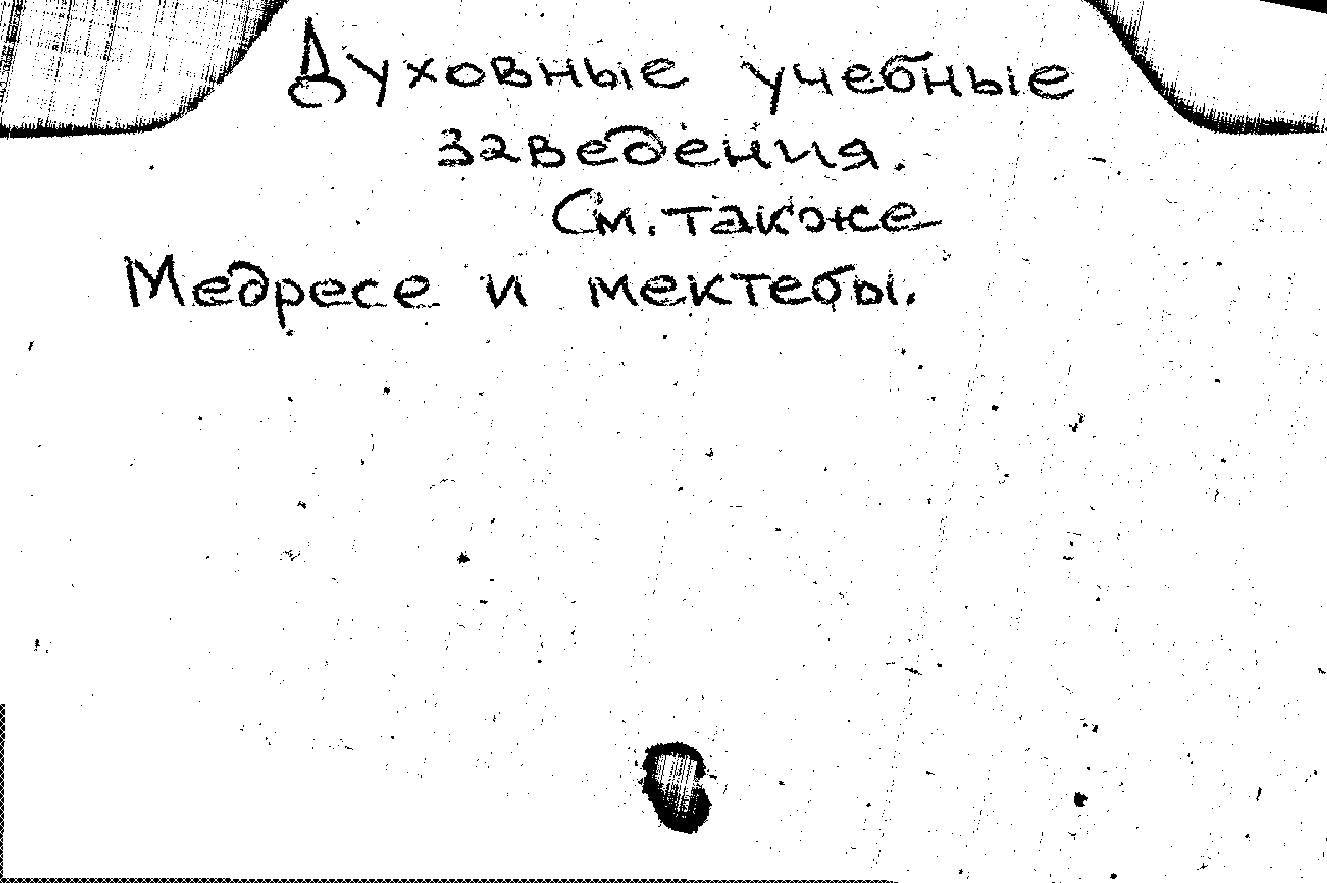 Духовные учебные
заведения.
См. также
Медресе и мектебы.